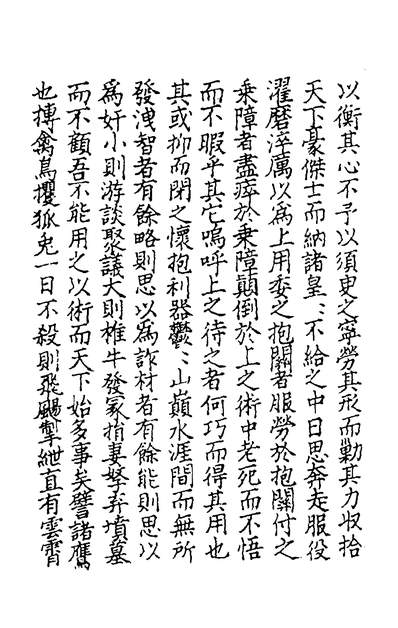 以衡其心不予以須臾之寧勞其形而勤其力收拾
天下豪傑士而納諸皇〻不給之中日思奔走服役
濯磨淬厲以爲上用委之抱關者服勞於抱關付之
乘障者盡瘁於乘障顛倒於上之術中老死而不悟
而不暇乎其它嗚呼上之待之者何巧而得其用也
其或抑而閉之懷抱利器鬱〻山巔水涯間而無所
發洩智者有餘略則思以爲詐材者有餘能則思以
爲奸小則游談聚議大則椎牛發冢捐妻孥弃墳墓
而不顧吾不能用之以術而天下始多事矣譬諸鷹
也摶禽鳥攫狐兔一日不殺則飛颺掣紲直有雲霄